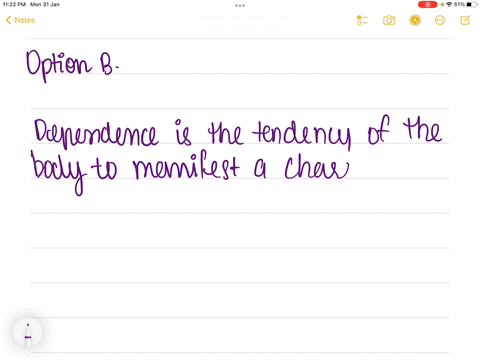 11:22 PM Mon 31 Jan
51%
Notes
Option B.
Dependence is the tendency of the
body to manifest a char